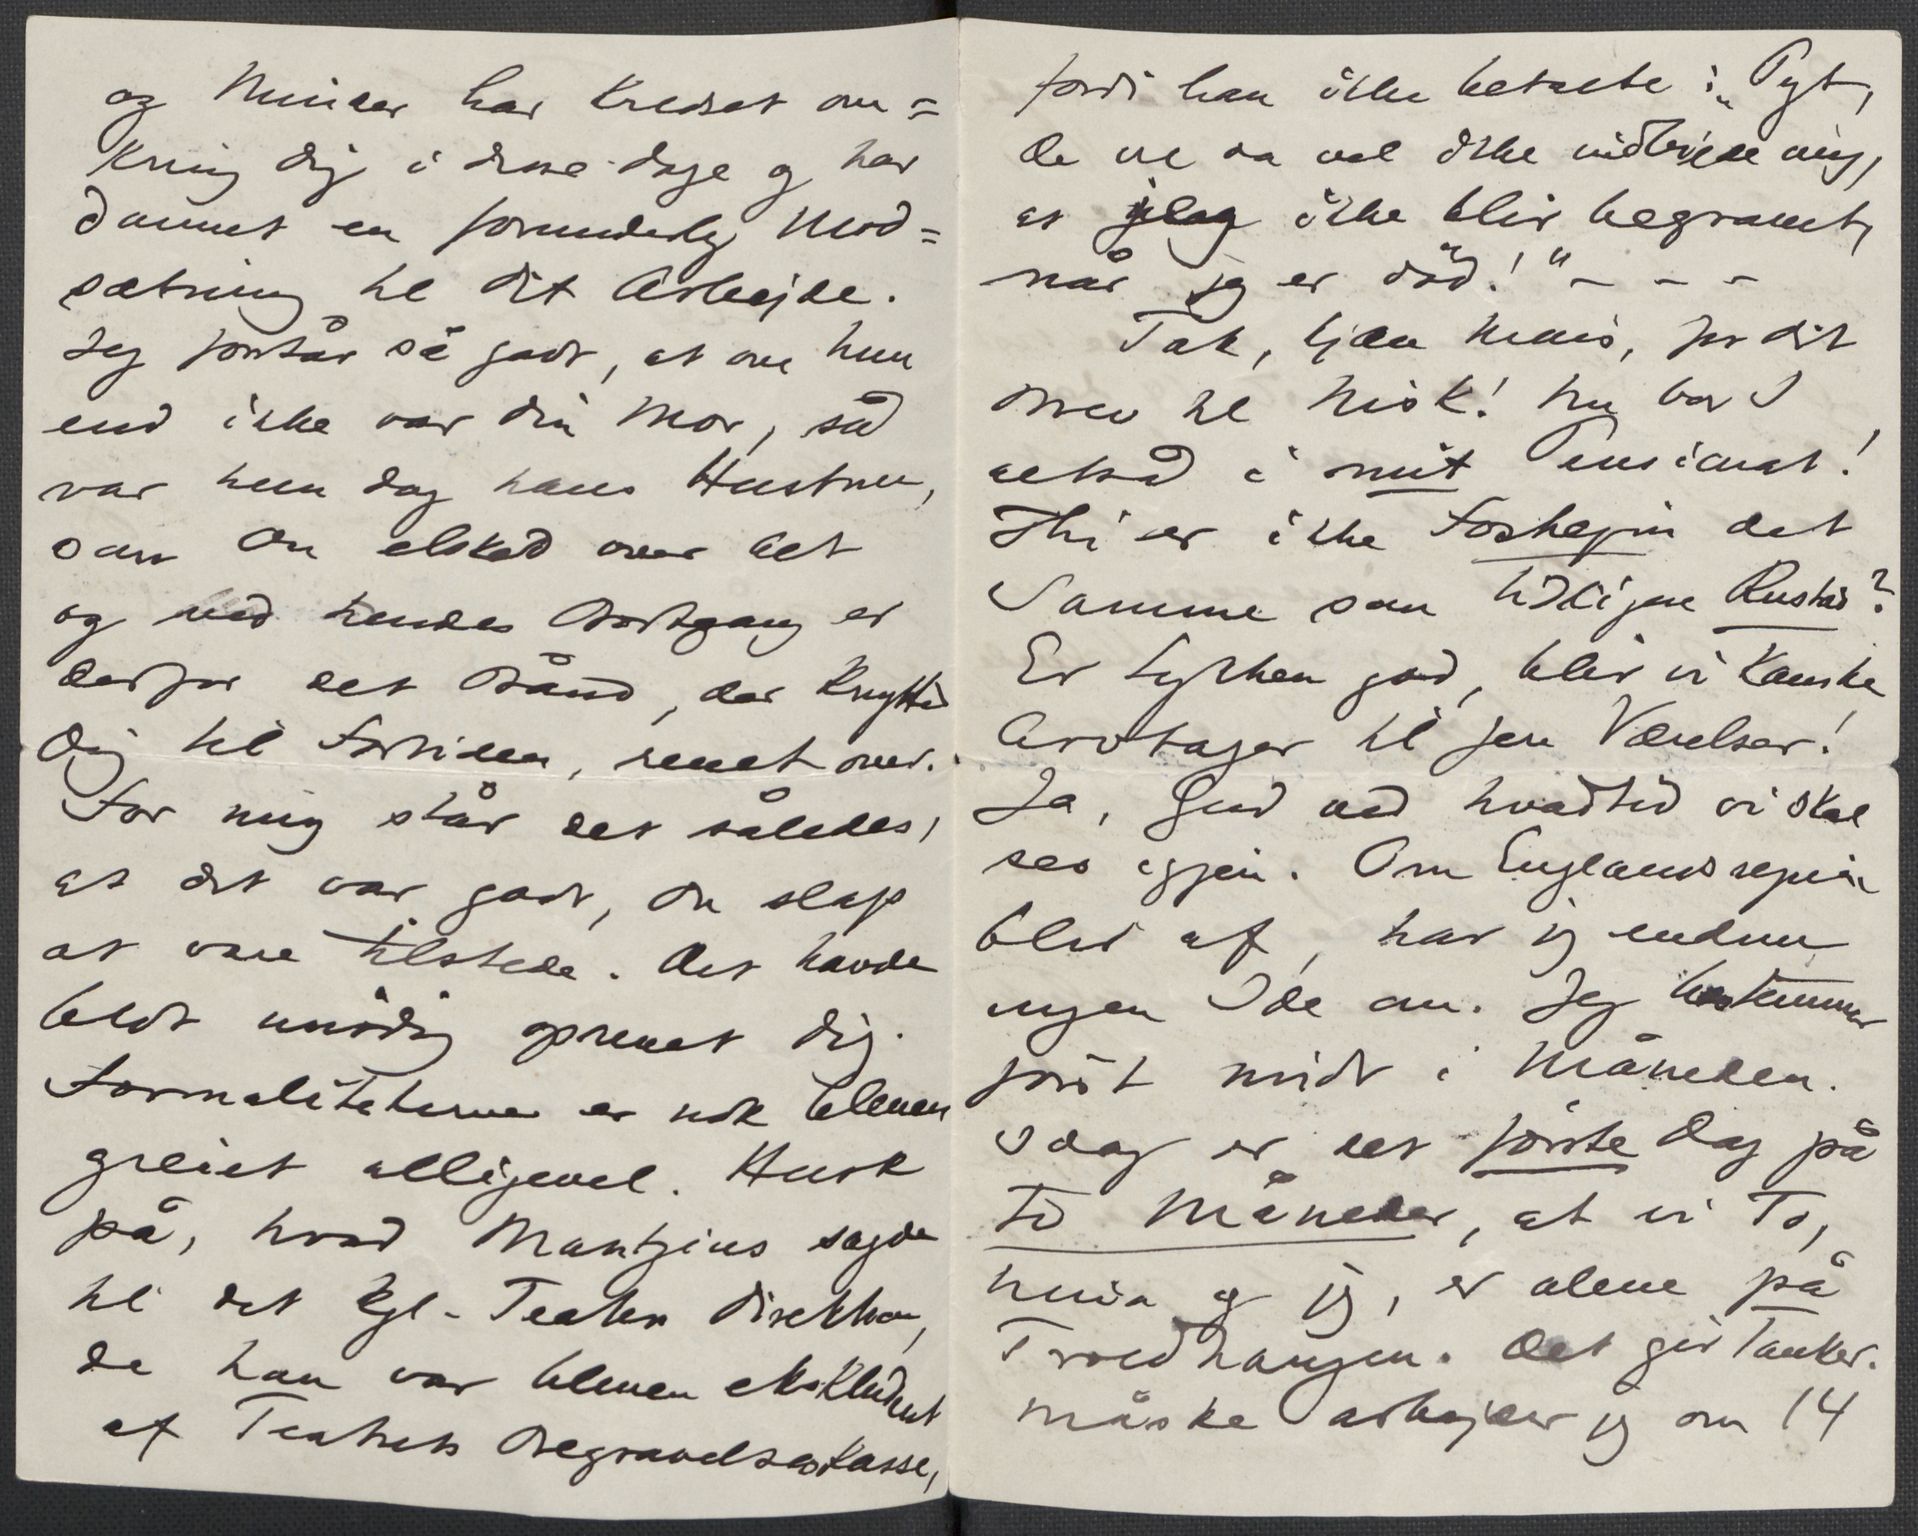 og Minder har kredset om=
kring dig i disse dage og har
dannet en forunderlig Mod=
sætning til dit Arbejde.
Jeg forstår så godt, at om hun
end ikke var din Mor, så
var hun dog hans Hustru,
som Du elsked over alt
og med hendes Bortgang er
derfor det Bånd, der knytted
Dig til Fortiden, revet over.
For mig står det således,
at det var godt, Du slap
at være tilstede. Det havde
blot unödig oprevet dig.
Formaliteterne er nok bleven
greiet alligevel. Husk
på, hvad Mantzius sagde
til det kgl. Teaters direktion,
da han var bleven ekskluderet
af Teatrets Begravelseskasse,
fordi han ikke betalte: „Pyt,
De vil da vel ikke indbilde mig,
at jeg ikke blir begravet,
når jeg er död!" - - -
Tak, kjære Frants, for dit
Brev til Nisk! Nu bor I
altså i mit Pensionat!
Thi er ikke Foshejm det
Samme som tidligere Rustad?
Er Lykken god, blir vi kanske
Arvtager til jere Værelser!
Ja, Gud ved hvadtid vi skal
ses igjen. Om Englandsrejsen
blir af, har jeg endnu
ingen Ide om. Jeg bestemmer
först midt i Måneden.
Idag er det förste Dag på
to Måneder, at vi To,
Nina og jeg, er alene på
Troldhaugen. Det gir Tanker.
Måske arbejder jeg om 14